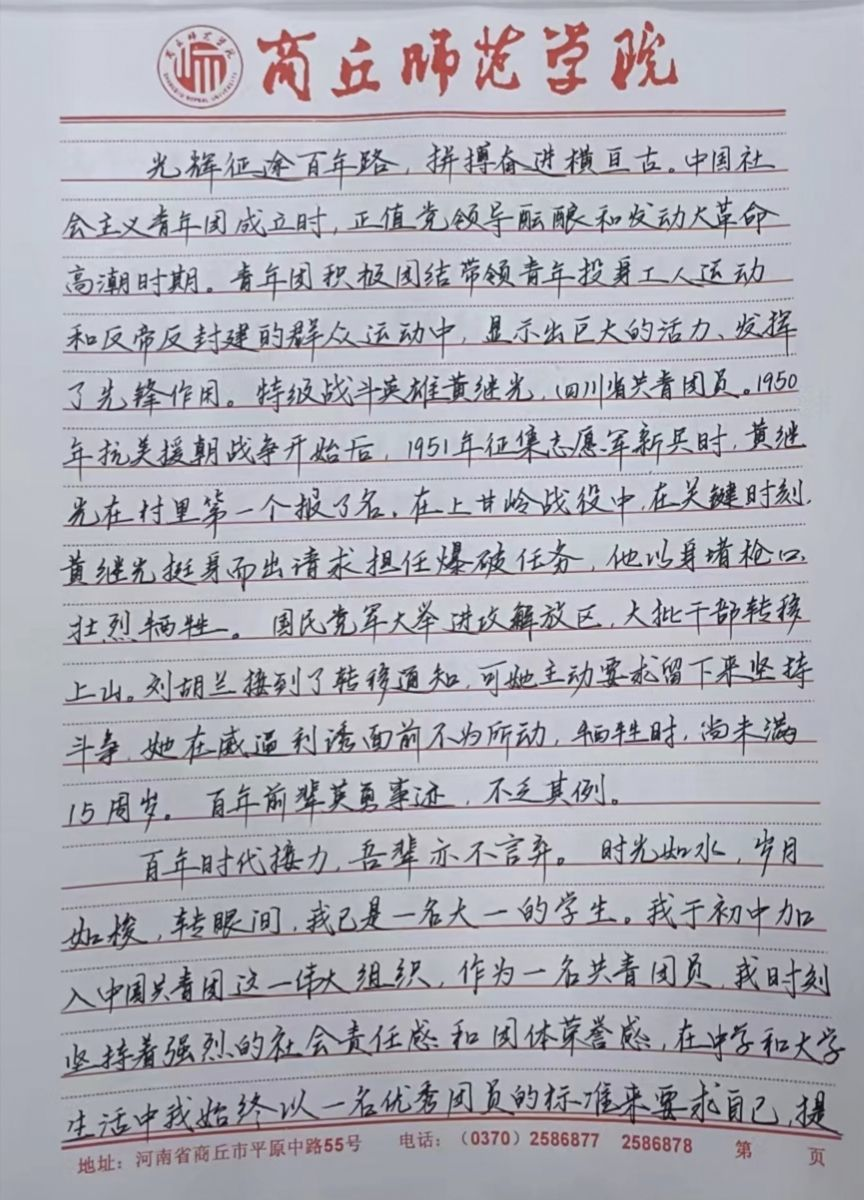 商丘师范学院
光辉征途百年路，拼搏奋进横亘古。中国社
会主义青年团成立时，正值党领导酝酿和发动大革命
高潮时期。青年团积极团结带领青年投身工人运动
和反帝反封建的群众运动中，显示出巨大的活力、发挥
了先锋作用。特级战斗英雄黄继光，四川省共青团员。1950
年抗美援朝战争开始后，1951年征集志愿军新兵时，黄继
光在村里第一个报了名。在上甘岭战役中，在关键时刻，
黄继光挺身而出请求担任爆破任务，他以身堵枪口，
壮烈牺牲。国民党军大举进攻解放区，大批干部转移
上山。刘胡兰接到了转移通知，可她主动要求留下来坚持
斗争，她在威逼利诱面前不为所动，牺牲时，尚未满
15周岁。百年前辈英勇事迹，不乏其例。
百年时代接力，吾辈亦不言弃。时光如水，岁月
如梭，转眼间，我已是一名大一的学生。我于初中加
入中国共青团这一伟大组织，作为一名共青团员，我时刻
坚持着强烈的社会责任感和团体荣誉感，在中学和大学
生活中我始终以一名优秀团员的标准来要求自己，提
地址：河南省商丘市平原中路55号 电话：（0370）2586877 2586878 第 页